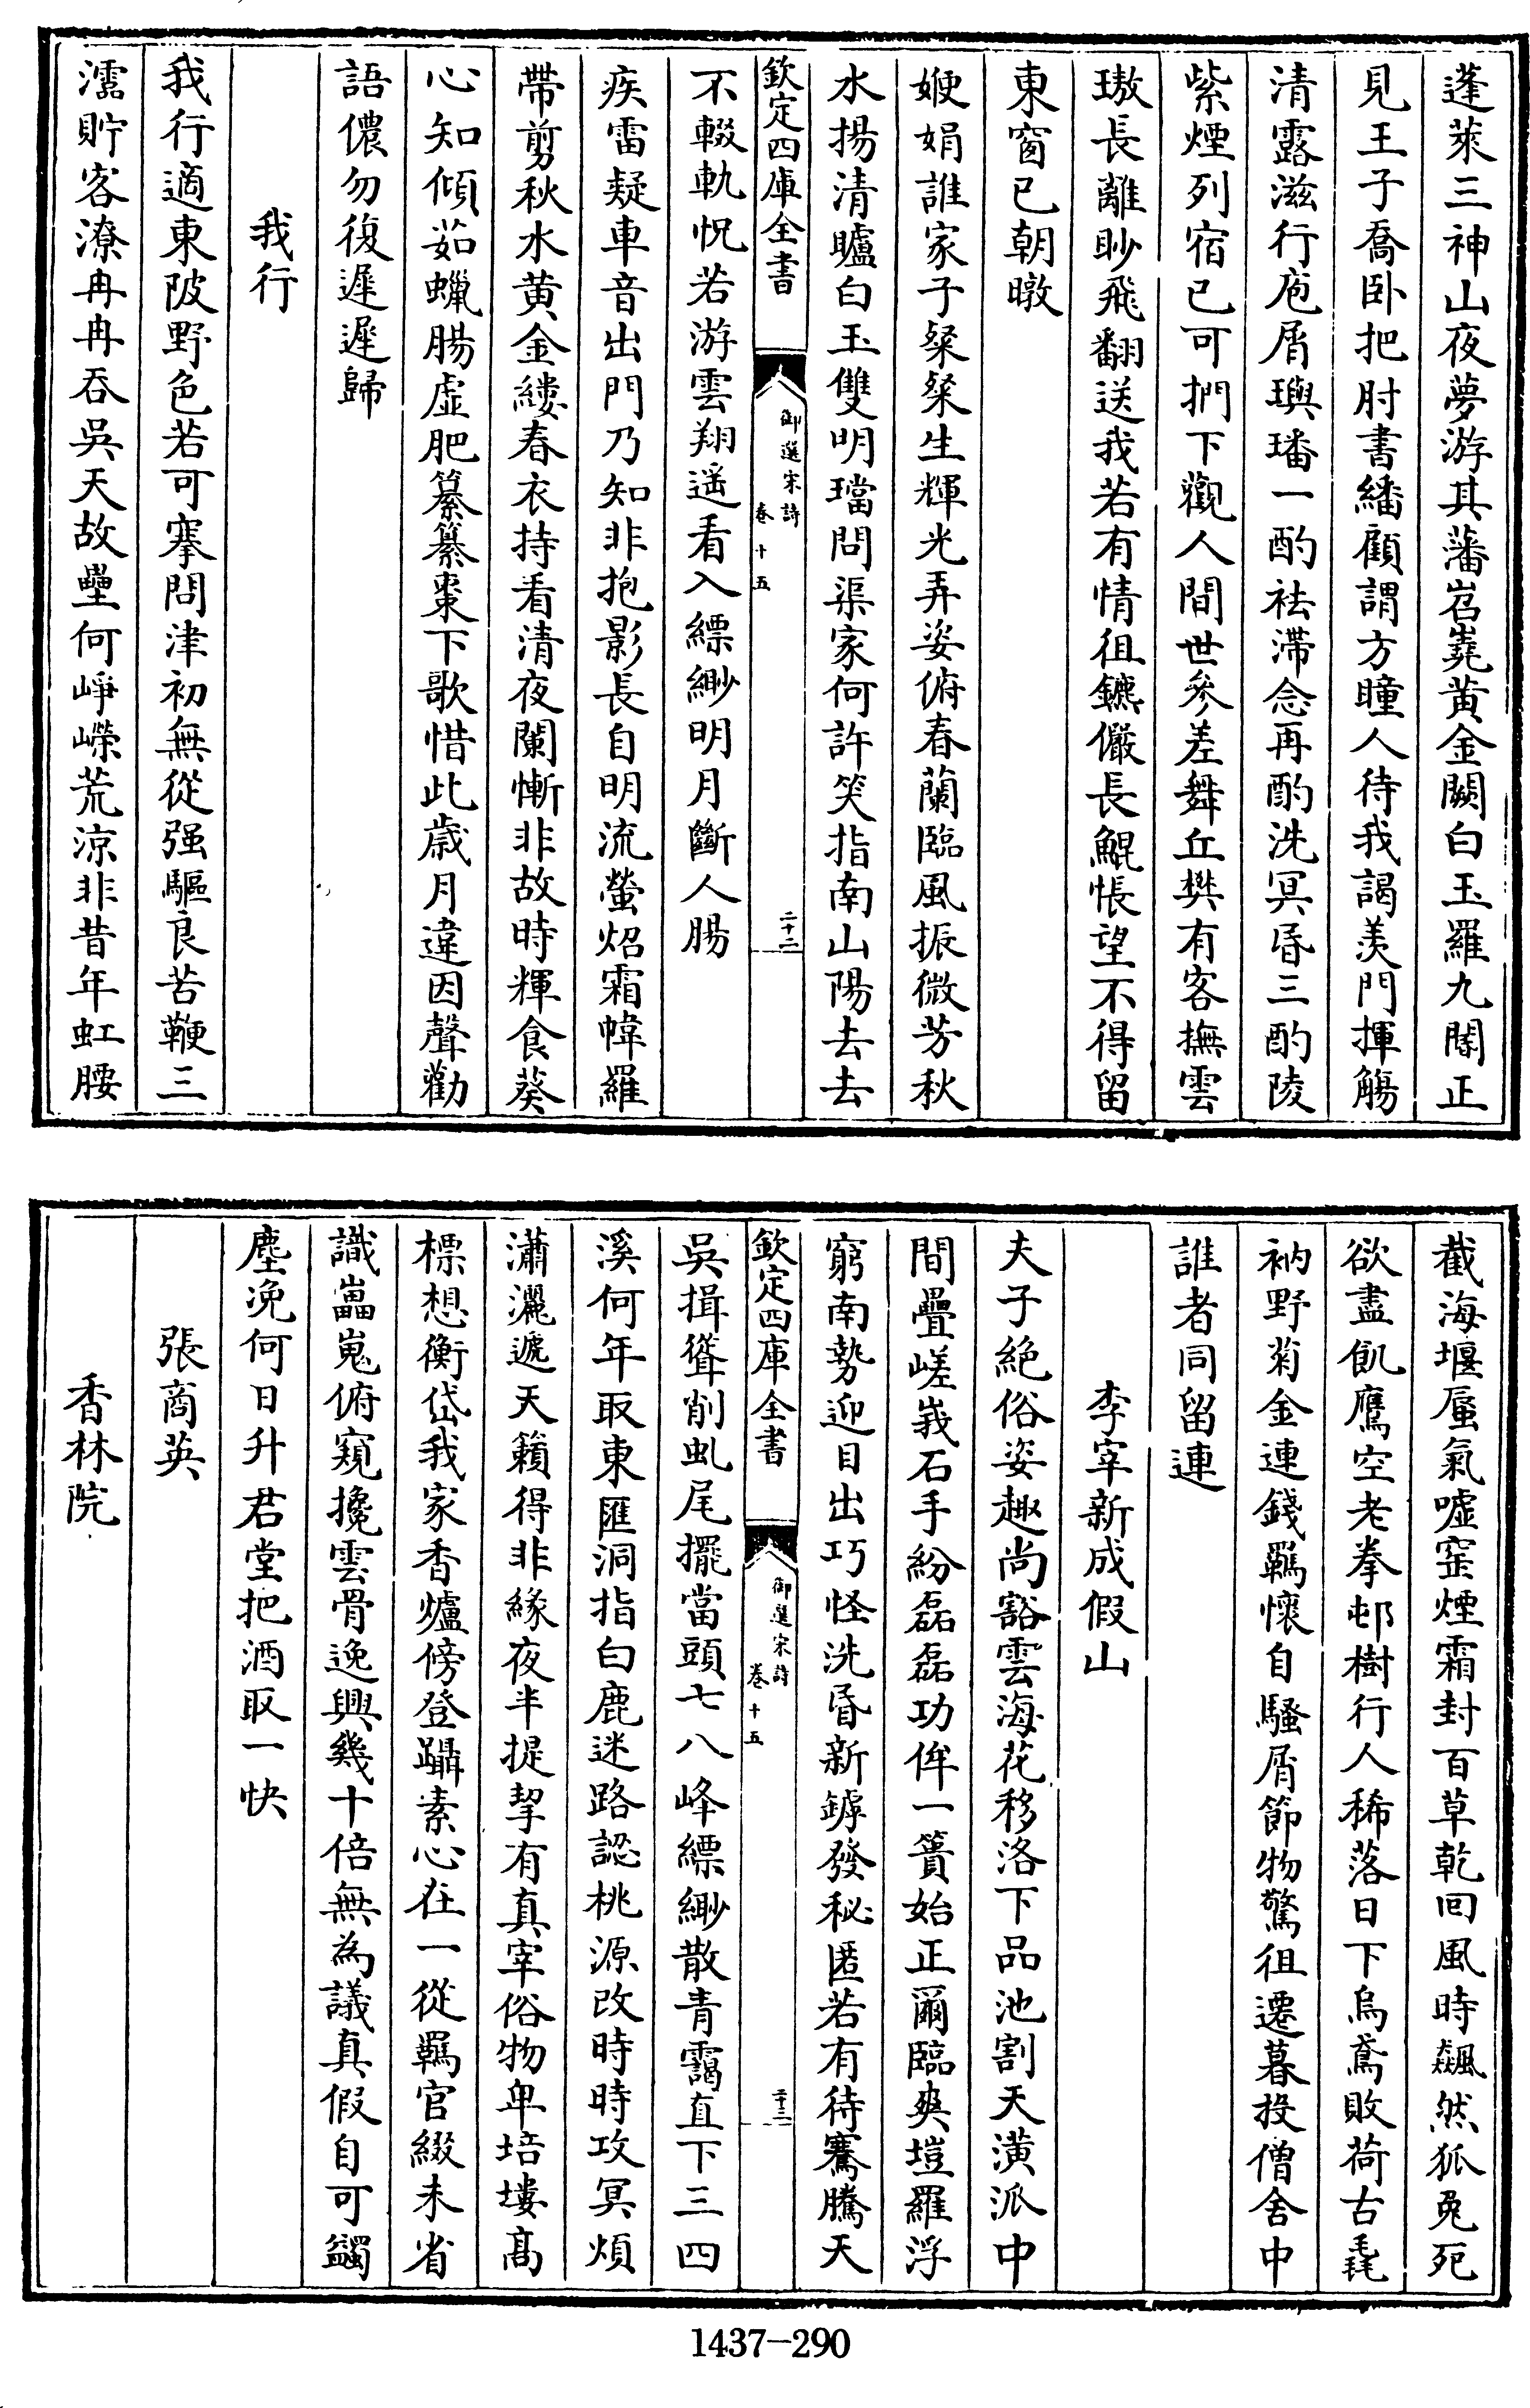 蓬萊三神山夜夢游其藩岧嶤黄金闕白玉羅九關正
見王子喬卧把肘書繙顧謂方瞳人待我謁羨門揮觴
清露滋行庖屑璵璠一酌祛滯念再酌洗冥昏三酌陵
紫煙列宿已可捫下觀人間世參差舞丘樊有客撫雲
璈長離眇飛翻送我若有情徂鑣儼長鯤悵望不得留
東窗已朝暾
㛹娟誰家子粲粲生輝光弄姿俯春蘭臨風振微芳秋
水揚清矑白玉雙明璫問渠家何許笑指南山陽去去
欽定四庫全書
御選宋詩
卷十五
二十二
不輟軌怳若游雲翔遥看入縹緲明月斷人腸
疾雷疑車音出門乃知非抱影長自明流螢炤霜幃羅
帶剪秋水黄金縷春衣持看清夜闌慚非故時輝食葵
心知傾茹蠟腸虛肥纂纂棗下歌惜此歲月違因聲勸
語儂勿復遲遲歸
我行
我行適東陂野色若可搴問津初無從强驅良苦鞭三
澐貯容潦冉冉吞吳天故壘何崢嶸荒凉非昔年虹腰
截海堰蜃氣噓窑煙霜封百草乾回風時飆然狐兔死
欲盡飢鷹空老拳邨樹行人稀落日下烏鳶敗荷古毳
衲野菊金連錢羈懷自騷屑節物驚徂遷暮投僧舍中
誰者同留連
李宰新成假山
夫子絶俗姿趣尚豁雲海花移洛下品池割天潢派中
間疊嵯峩石手紛磊磊功侔一簣始正爾臨爽塏羅浮
窮南勢迎目出巧怪洗昏新鎼發秘匿若有待騫騰天
欽定四庫全書
御選宋詩
卷十五
二十三
吳揖聳削虬尾擺當頭七八峰縹緲散青靄直下三四
溪何年取東匯洞指白鹿迷路認桃源改時時攻冥煩
瀟灑遞天籟得非緣夜半提挈有真宰俗物卑培塿髙
標想衡岱我家香爐傍登躡素心在一從羈官綴未省
識嵓嵬俯窺攙雲骨逸興幾十倍無為議真假自可蠲
塵浼何日升君堂把酒取一快
張商英
香林院
1437-290